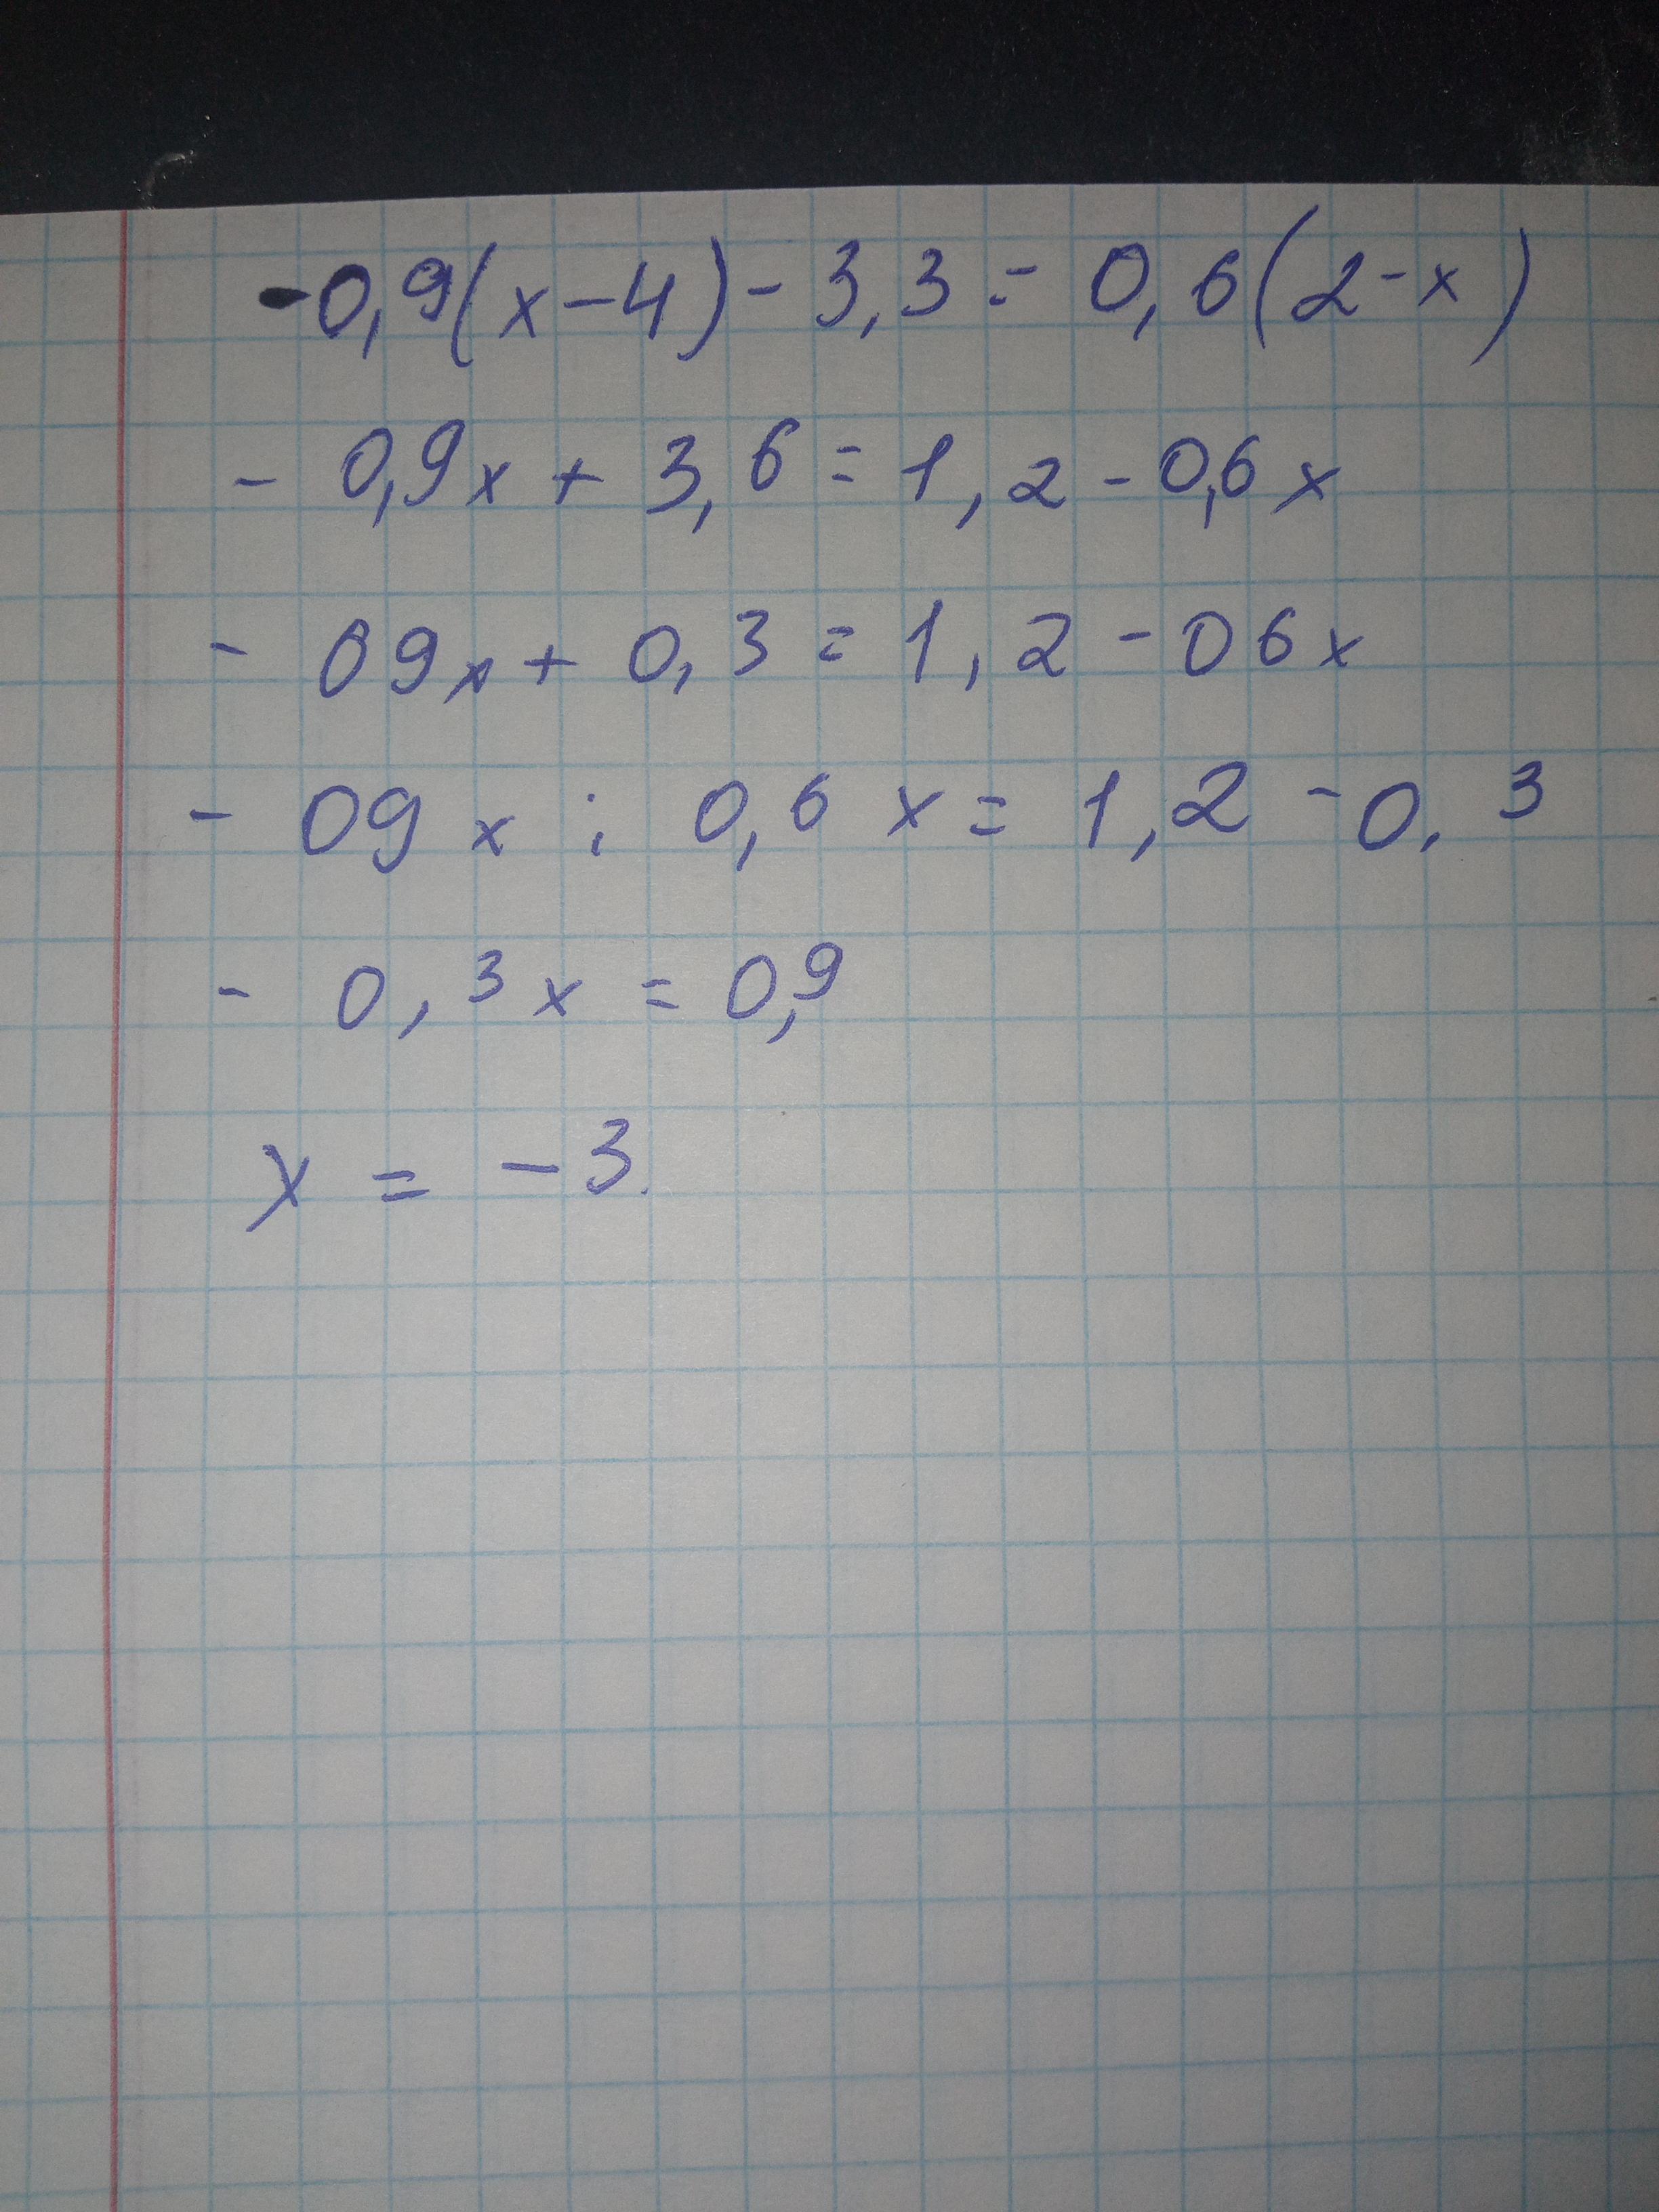 -0,9(x-4)-3,3=0,6(2-x)
- 0,9x+3,6=1,2-0,6x
- 09x+0,3=1,2-06x
- 09x : 0,6x=1,2-0,3
- 0,3x=0,9
x = -3.